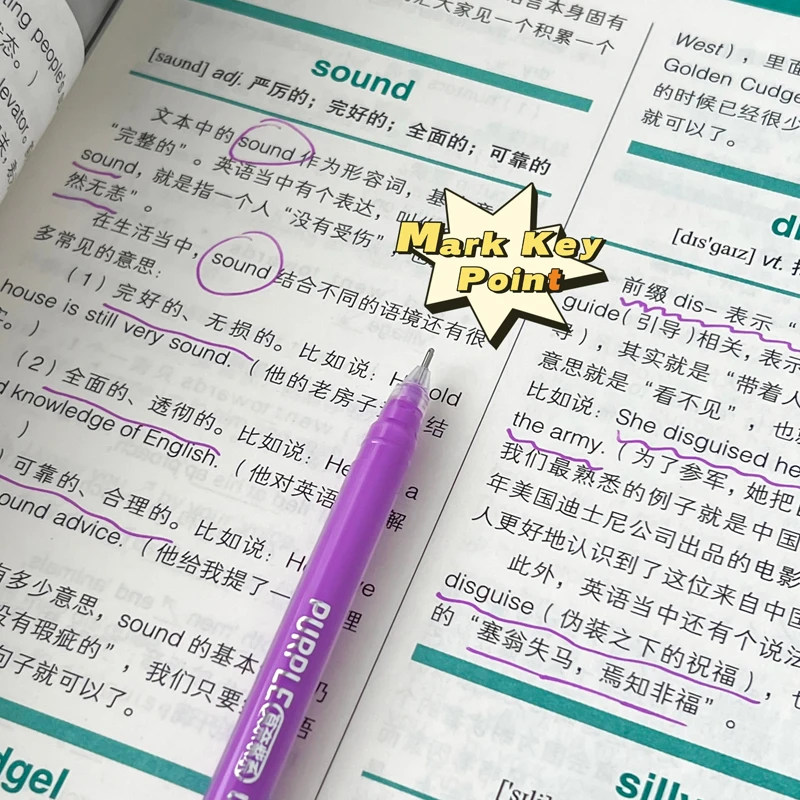 ting people's
态。）
levator.
言本身固有
大家见一个积累一个
sound
[saund] adj. 严厉的；完好的；全面的；可靠的
文本中的 sound 作为形容词，基
“完整的”。英语当中有个表达，叫
sound，就是指一个人“没有受伤”
然无恙”。
在生活当中，sound 结合不同的语境还有很
多常见的意思：
（1）完好的、无损的。比如说：H old
house is still very sound.（他的老房子 结
（2）全面的、透彻的。比如说：He a
d knowledge of English.（他对英语 解
）
）可靠的、合理的。比如说：He ve
ound advice.（他给我提了一 理
有多少意思，sound 的基本 仍
没有瑕疵的”，我们只要 语
句子就可以了。
dgel
West），里面
Golden Cudge
的时候已经很少
就可以了。
di
[dɪs'gaɪz] vt.
前缀 dis– 表示“
guide（引导）相关，表示
导），其实就是“带着人
意思就是“看不见”，也
比如说：She disguised he
the army.（为了参军，她把
我们最熟悉的例子就是中国
年美国迪士尼公司出品的电影
人更好地认识到了这位来自中国
此外，英语当中还有个说法
disguise（伪装之下的祝福），也
的“塞翁失马，焉知非福”。
silly
['sɪli]
Mark Key
Point
PURPLE